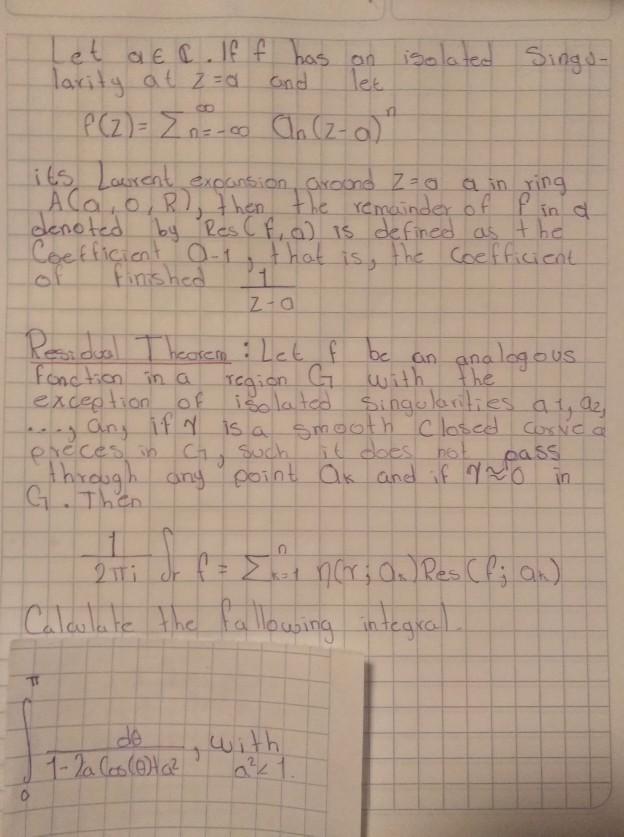 Let a ∈ ℂ. If f has an isolated Singu-
larity at z=a and let
f(z) = Σ_{n=-∞}^{∞} an(z-a)^n
its Laurent expansion around z=a a in ring
A(a,0,R), then the remainder of f in a
denoted by Res(f,a) is defined as the
Coefficient a-1, that is, the coefficient
of finished 1/(z-a)
Residual Theorem: Let f be an analogous
function in a region G with the
exception of isolated singularities a1, a2,
..., an, if γ is a smooth closed curve a
pieces in G, such it does not pass
through any point ak and if γ≈0 in
G. Then
1/(2πi) ∫γ f = Σ_{k=1}^{n} η(γ; ak) Res(f; ak)
Calculate the following integral.
∫_0^π dθ/(1-2a Cos(θ)+a²), with
a²<1.